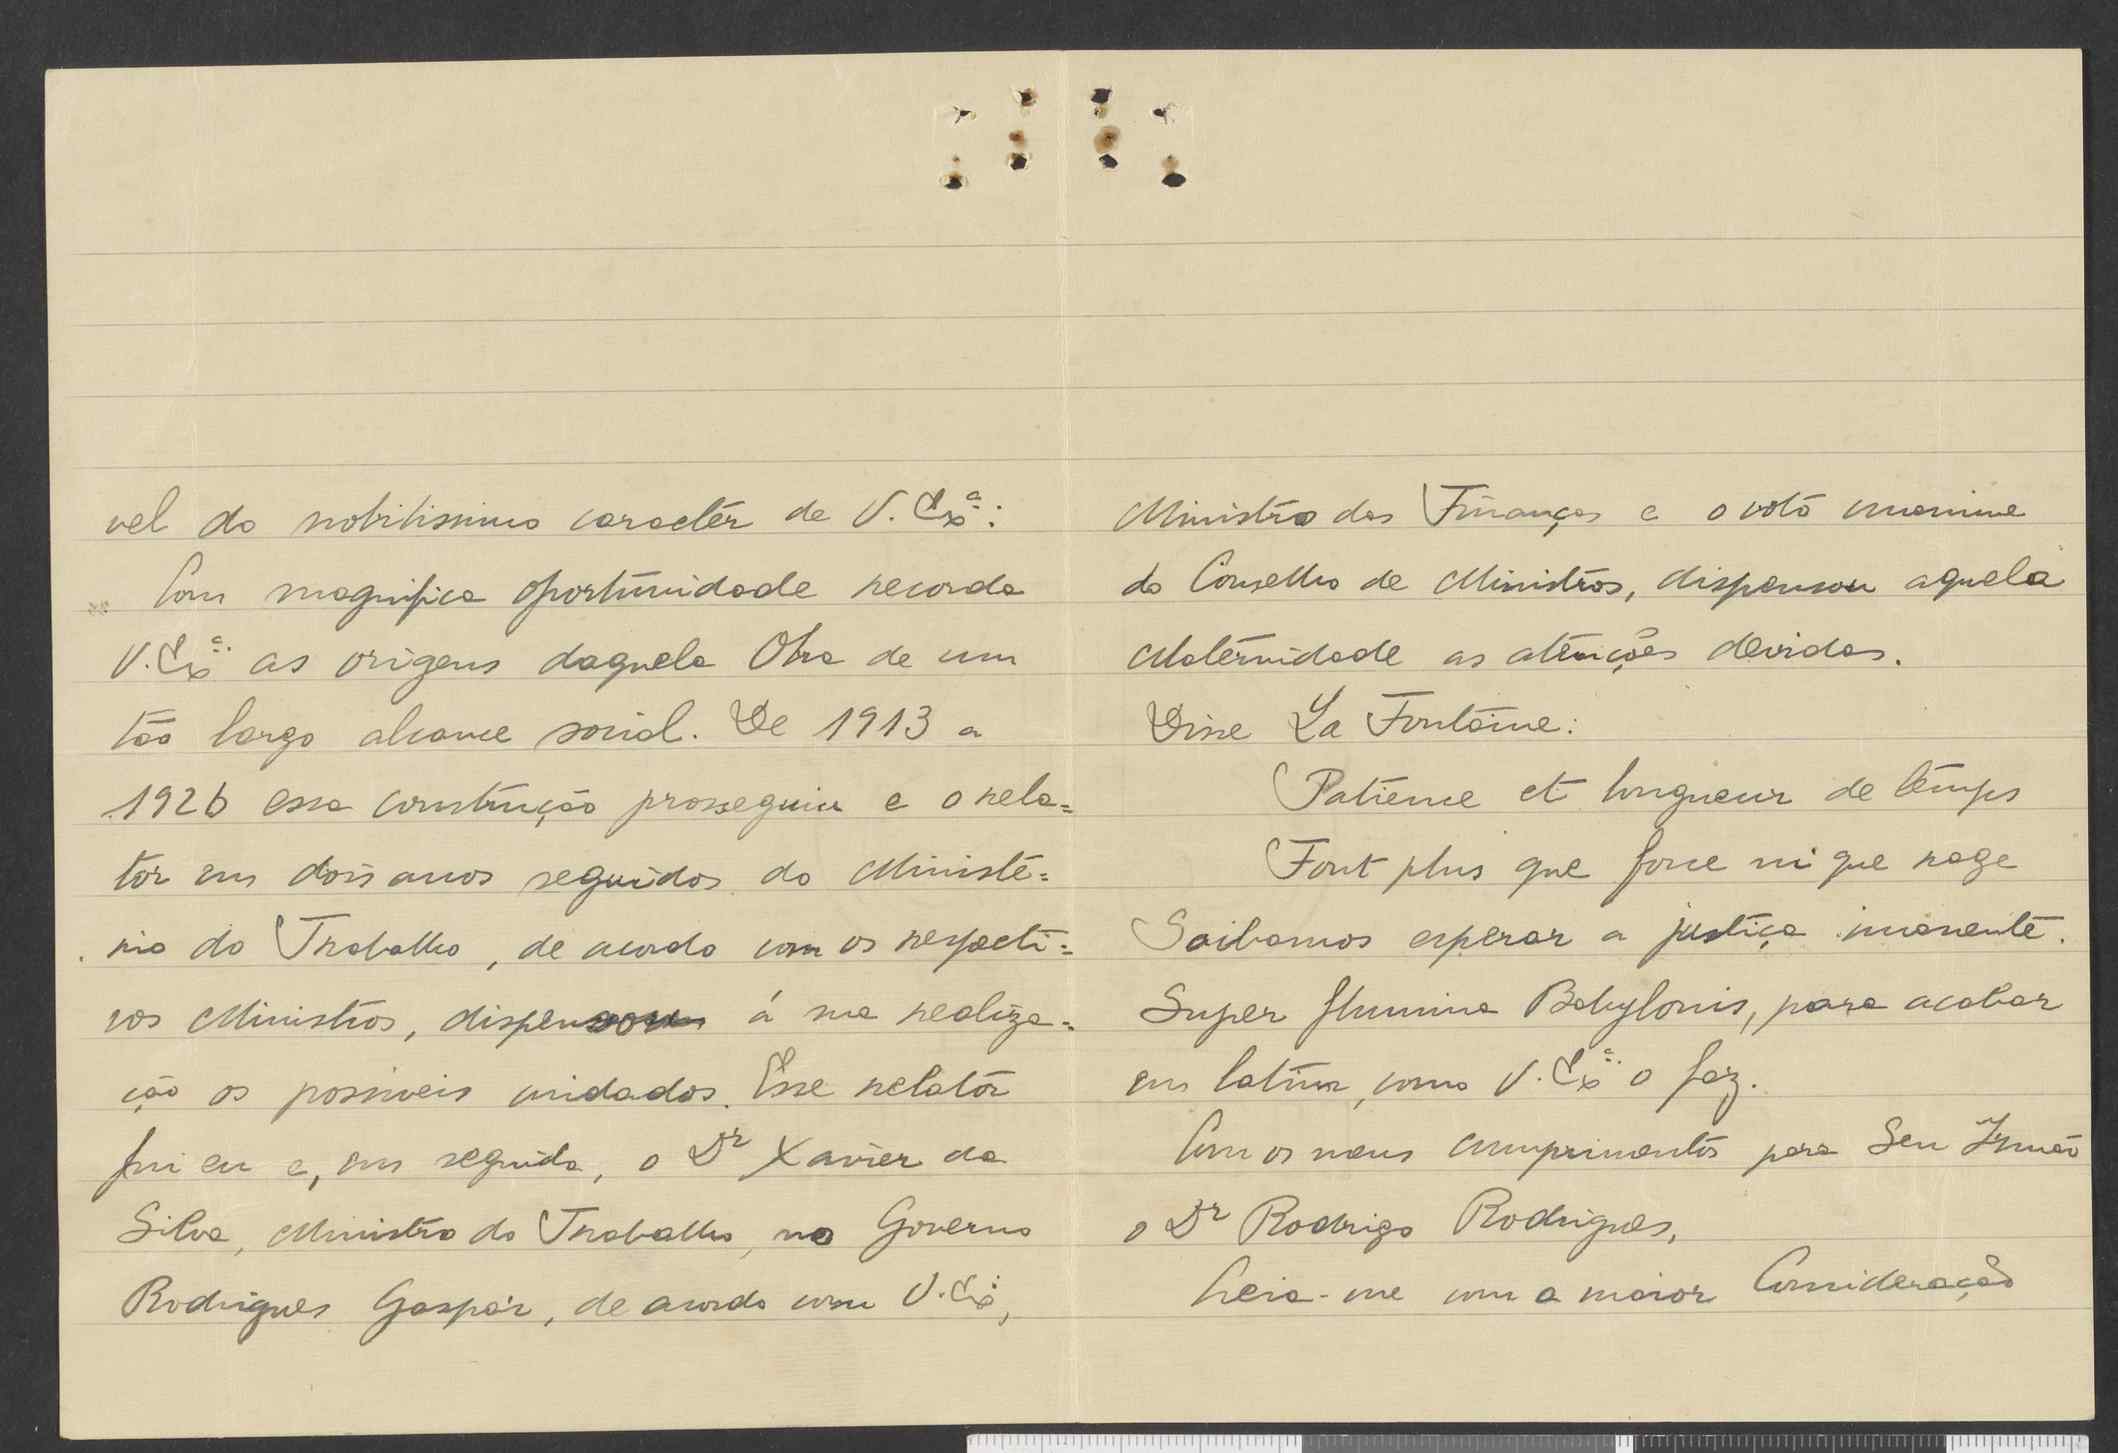 vel do nobilissimo caractér de V. Exª:
Com magnifica oportunidade recorda
V. Exª as origens daquela Obra de um
tão largo alcance social. De 1913 a
1926 essa construção prosseguiu e o rela=
tor em dois anos seguidos do Ministé=
rio do Trabalho, de acordo com os respecti=
vos Ministros, dispensou á sua realiza=
ção os possiveis cuidados. Esse relator
fui eu e, em seguida, o Dr Xavier da
Silva, Ministro do Trabalho, no Governo
Rodrigues Gaspar, de acordo com V. Exª,
Ministro das Finanças e o voto unanime
do Conselho de Ministros, dispensou aquela
Maternidade as atenções devidas.
Disse La Fontaine:
Patience et longueur de temps
Font plus que force ni que rage
Saibamos esperar a justiça imanente.
Super flumina Babylonis, para acabar
em latim, como V. Exª o faz.
Com os meus cumprimentos para Seu Irmão
o Dr Rodrigo Rodrigues,
Creia-me com a maior Consideração